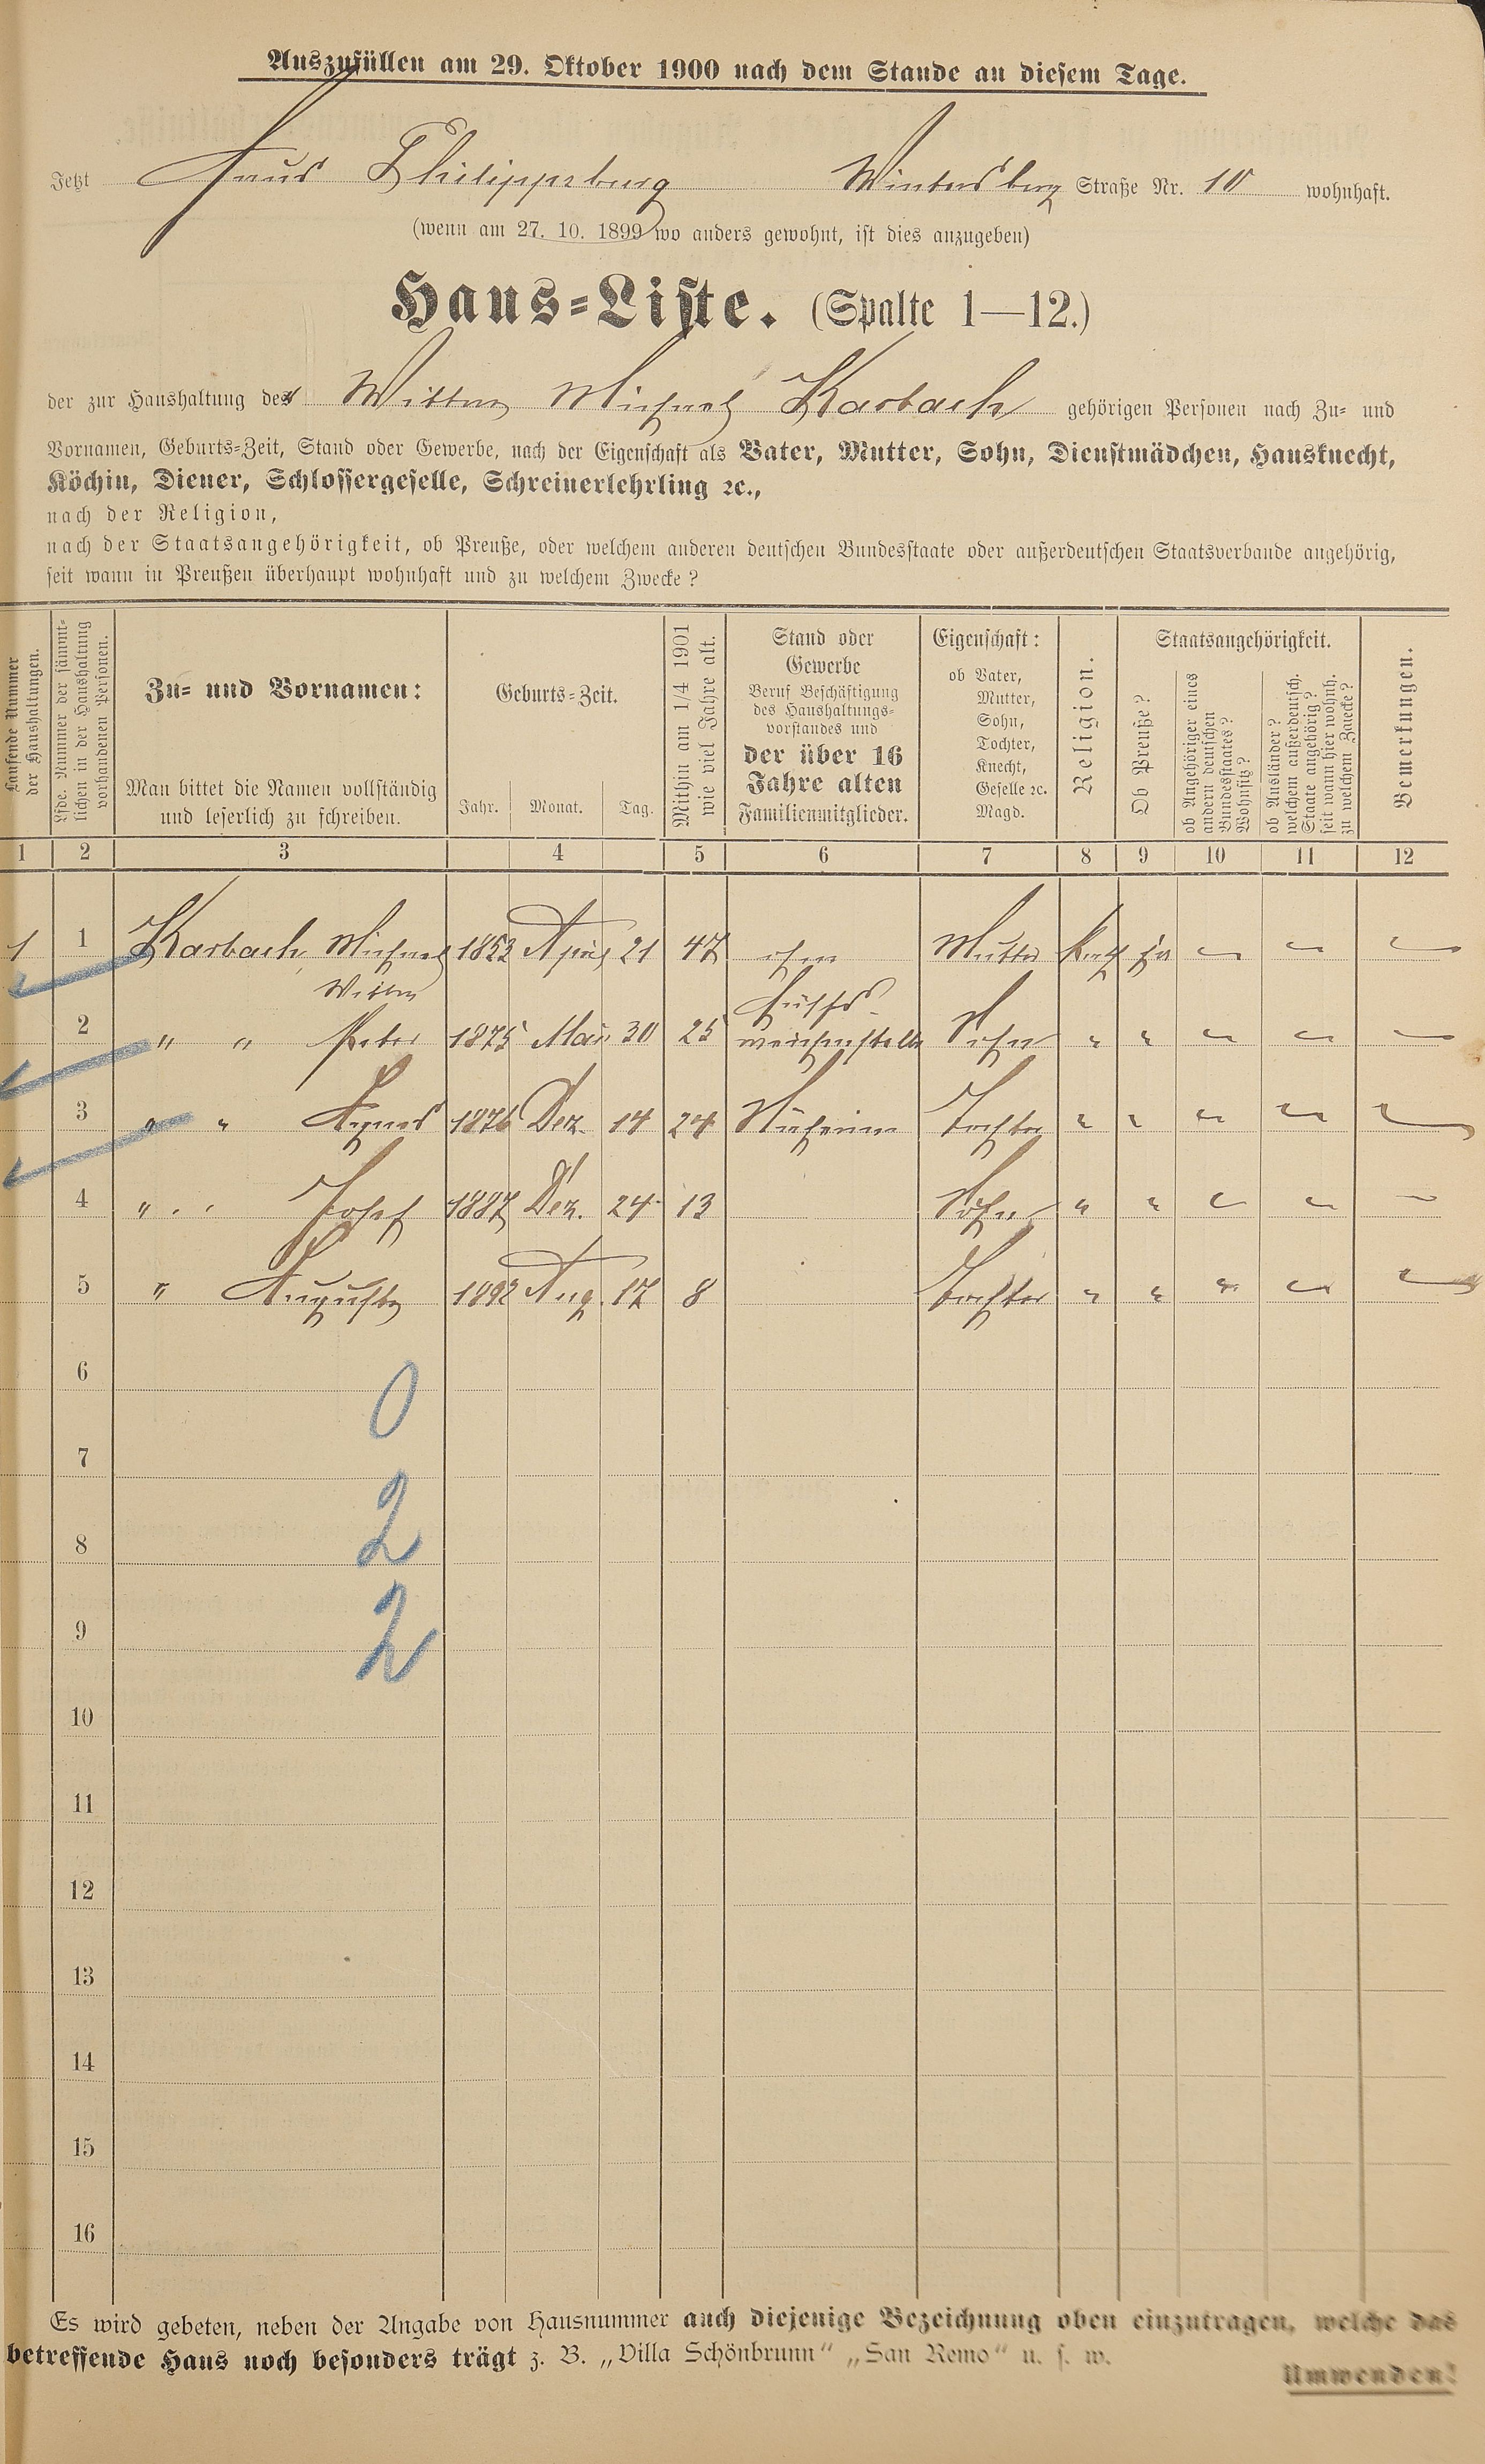 Auszufüllen am 29. Oktober 1900 nach dem Stande an diesem Tage.
Jetzt Haus Philippsburg Wintersberg Straße Nr. 10 wohnhaft.
(wenn am 27. 10. 1899 wo anders gewohnt, ist dies anzugeben)
Haus-Liste. (Spalte 1—12.)
der zur Haushaltung der Wittwe Michael Karbach gehörigen Personen nach Zu- und
Vornamen, Geburts-Zeit, Stand oder Gewerbe, nach der Eigenschaft als Vater, Mutter, Sohn, Dienstmädchen, Hausknecht,
Köchin, Diener, Schlossergeselle, Schreinerlehrling ꝛc.,
nach der Religion,
nach der Staatsangehörigkeit, ob Preuße, oder welchem anderen deutschen Bundesstaate oder außerdeutschen Staatsverbande angehörig,
seit wann in Preußen überhaupt wohnhaft und zu welchem Zwecke?
Laufende Nummer
der Haushaltungen.
Lfde. Nummer der sämmt-
lichen in der Haushaltung
vorhandenen Personen.
Zu- und Vornamen:
Man bittet die Namen vollständig
und leserlich zu schreiben.
Geburts-Zeit.
Jahr. Monat. Tag.
Mithin am 1/4 1901
wie viel Jahre alt.
Stand oder
Gewerbe
Beruf Beschäftigung
des Haushaltungs-
vorstandes und
der über 16
Jahre alten
Familienmitglieder.
Eigenschaft:
ob Vater,
Mutter,
Sohn,
Tochter,
Knecht,
Geselle ꝛc.
Magd.
Religion.
Staatsangehörigkeit.
Ob Preuße?
ob Angehöriger eines
andern deutschen
Bundesstaates?
Wohnsitz?
ob Ausländer?
welchem außerdeutsch.
Staate angehörig?
seit wann hier wohnh.
zu welchem Zwecke?
Bemerkungen.
1 2 3 4 5 6 7 8 9 10 11 12
1 1 Karbach, Michael 1853 April 21 47 ohne Mutter Kath ja — — —
Wittwe
Hülfs-
2 " " Peter 1875 Mai 30 25 weichensteller Sohn " " — — —
3 " " Agnes 1876 Dez. 14 24 Näherin Tochter " " — — —
4 " " Josef 1887 Dez. 24 13 Sohn " " — — —
5 " Auguste 1892 Aug. 17 8 Tochter " " — — —
6
0
7
2
8
9
2
10
11
12
13
14
15
16
Es wird gebeten, neben der Angabe von Hausnummer auch diejenige Bezeichnung oben einzutragen, welche das
betreffende Haus noch besonders trägt z. B. „Villa Schönbrunn“ „San Remo“ u. s. w.
Umwenden!